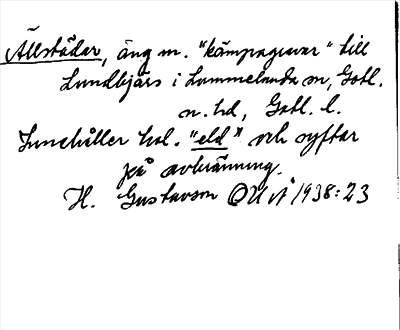 Ällstäder, äng m. "kämpagravar" till
Lundbjärs i Lummelunda sn, Gotl.
n. hd, Gotl. l.
Innehåller hal. "eld" och syftar
på avbränning.
H. Gustavson OUÅ 1938:23